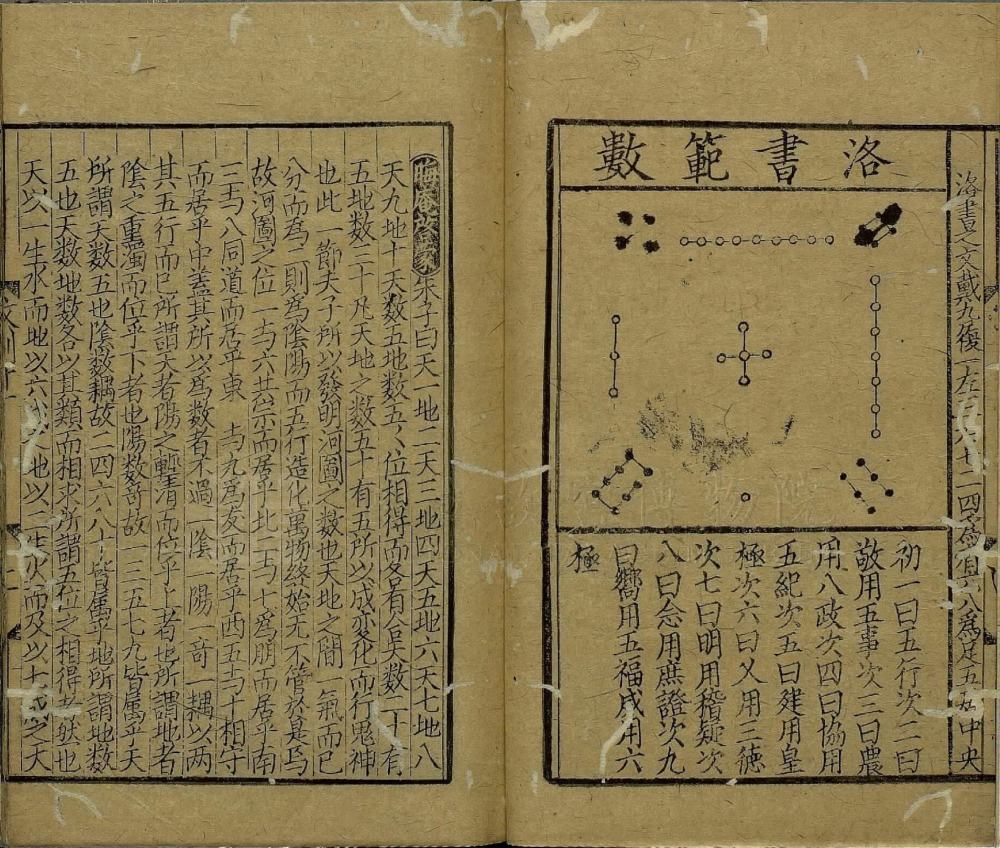 洛書之文戴九履一左七二四爲肩六八爲足五居中央
洛書範數
初一曰五行次二曰
敬用五事次三曰農
用八政次四曰協用
五紀次五曰建用皇
極次六曰乂用三德
次七曰明用稽疑次
八曰念用庶證次九
曰嚮用五福威用六
極
晦庵啓蒙朱子曰天一地二天三地四天五地六天七地八
天九地十天数五地数五〻位相得而各有合天数二十有
五地数三十凡天地之数五十有五所以成変化而行鬼神
也此一節夫子所以發明河圖之数也天地之間一氣而已
分而爲二則爲陰陽而五行造化萬物終始无不管於是焉
故河圖之位一与六共宗而居乎北二与七爲朋而居乎南
三与八同道而居乎東 与九爲友而居乎西五与十相守
而居乎中盖其所以爲数者不過一陰一陽一奇一耦以两
其五行而已所謂天者陽之輕清而位乎上者也所謂地者
陰之重濁而位乎下者也陽数奇故一三五七九皆属乎天
所謂天数五也陰数耦故二四六八十皆属乎地所謂地数
五也天数地数各以其類而相求所謂五位之相得者然也
天以一生水而地以六成之地以二生火而以七成之天